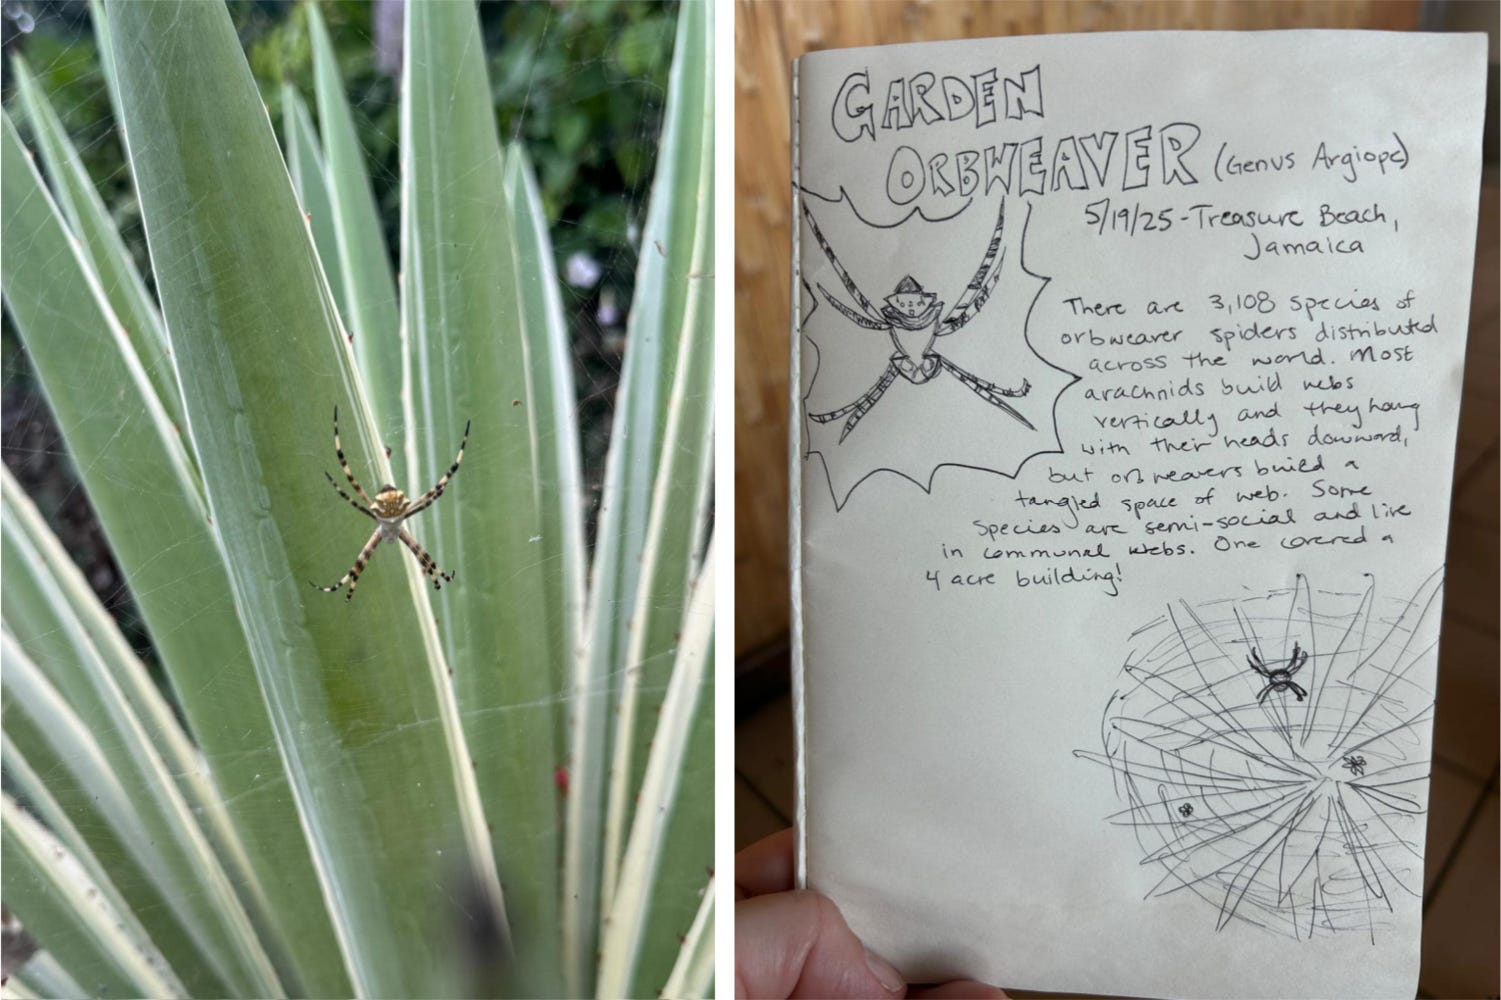 GARDEN
ORBWEAVER (Genus Argiope)
5/19/25 - Treasure Beach,
Jamaica
There are 3,108 species of
orbweaver spiders distributed
across the world. Most
arachnids build webs
vertically and they hang
with their heads downward,
but orbweavers build a
tangled space of web. Some
species are semi-social and live
in communal webs. One covered a
4 acre building!